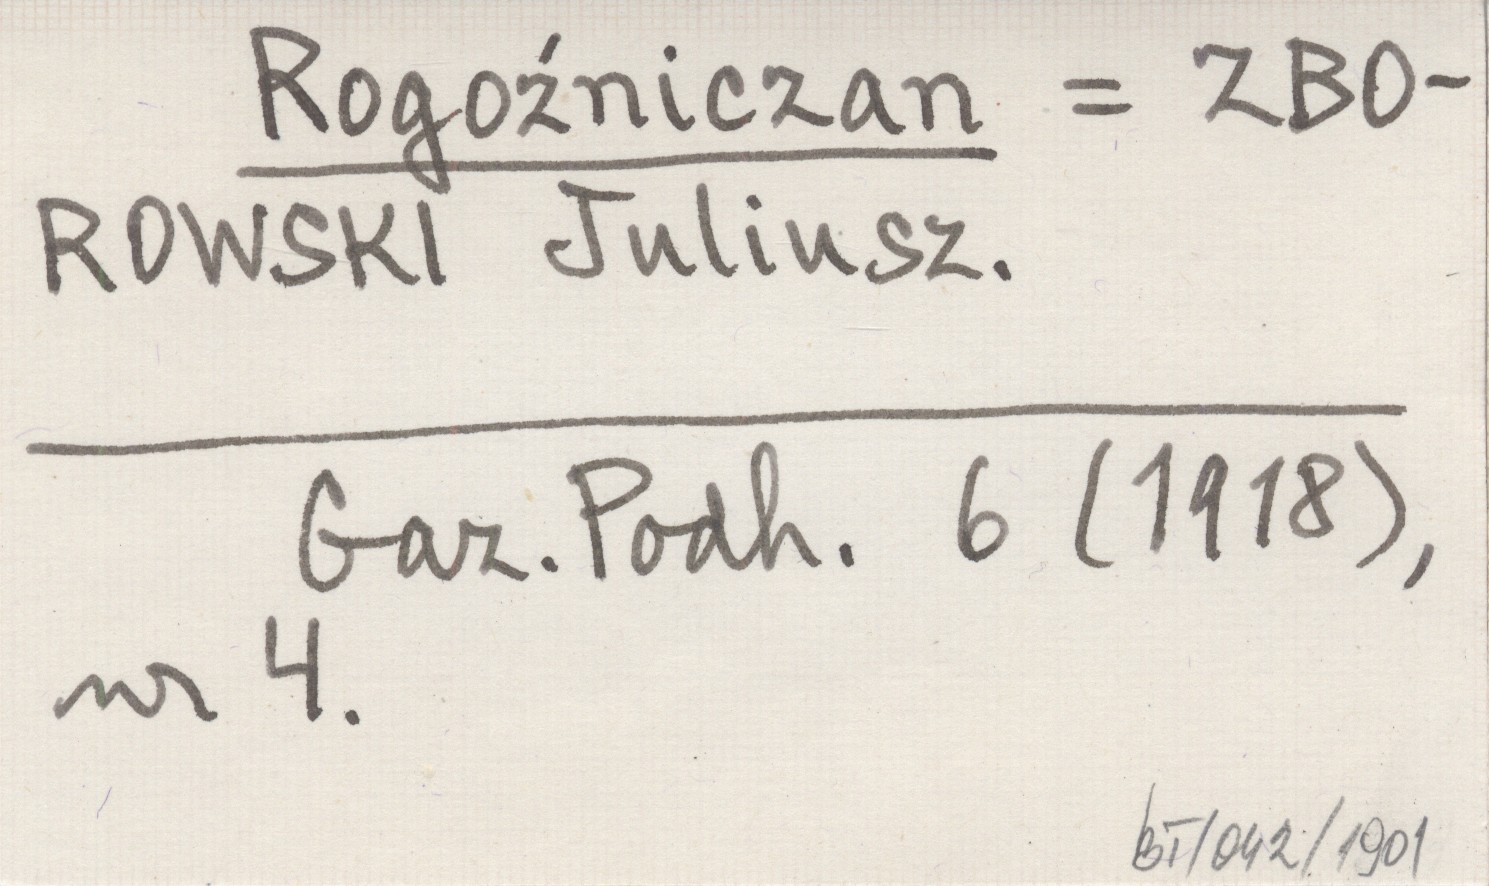 Rogoźniczan = ZBO-
ROWSKI Juliusz.
Gaz. Podh. 6 (1918),
nr 4.
BT/042/1901